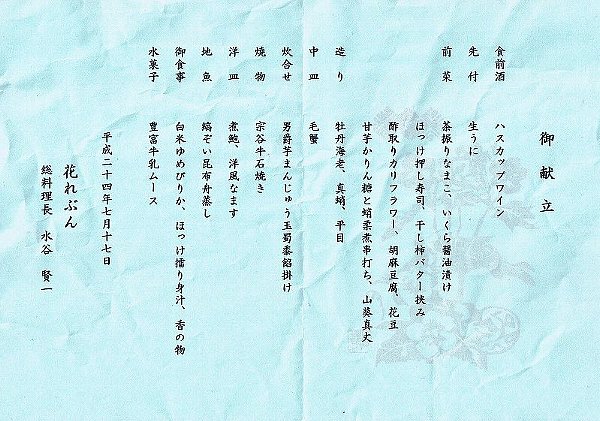 御献立
食前酒 ハスカップワイン
先付 生うに
前菜 茶振りなまこ、いくら醤油漬け
ほっけ押し寿司、干し柿バター挟み
酢取りカリフラワー、胡麻豆腐、花豆
甘芋かりん糖と蛸柔煮串打ち、山葵真丈
造り 牡丹海老、真蛸、平目
中皿 毛蟹
炊合せ 男爵芋まんじゅう玉蜀黍餡掛け
焼物 宗谷牛石焼き
洋皿 煮鮑、洋風なます
地魚 縞ぞい昆布舟蒸し
御食事 白米ゆめぴりか、ほっけ擂り身汁、香の物
水菓子 豊富牛乳ムース
平成二十四年七月十七日
花れぶん
総料理長 水谷 賢一